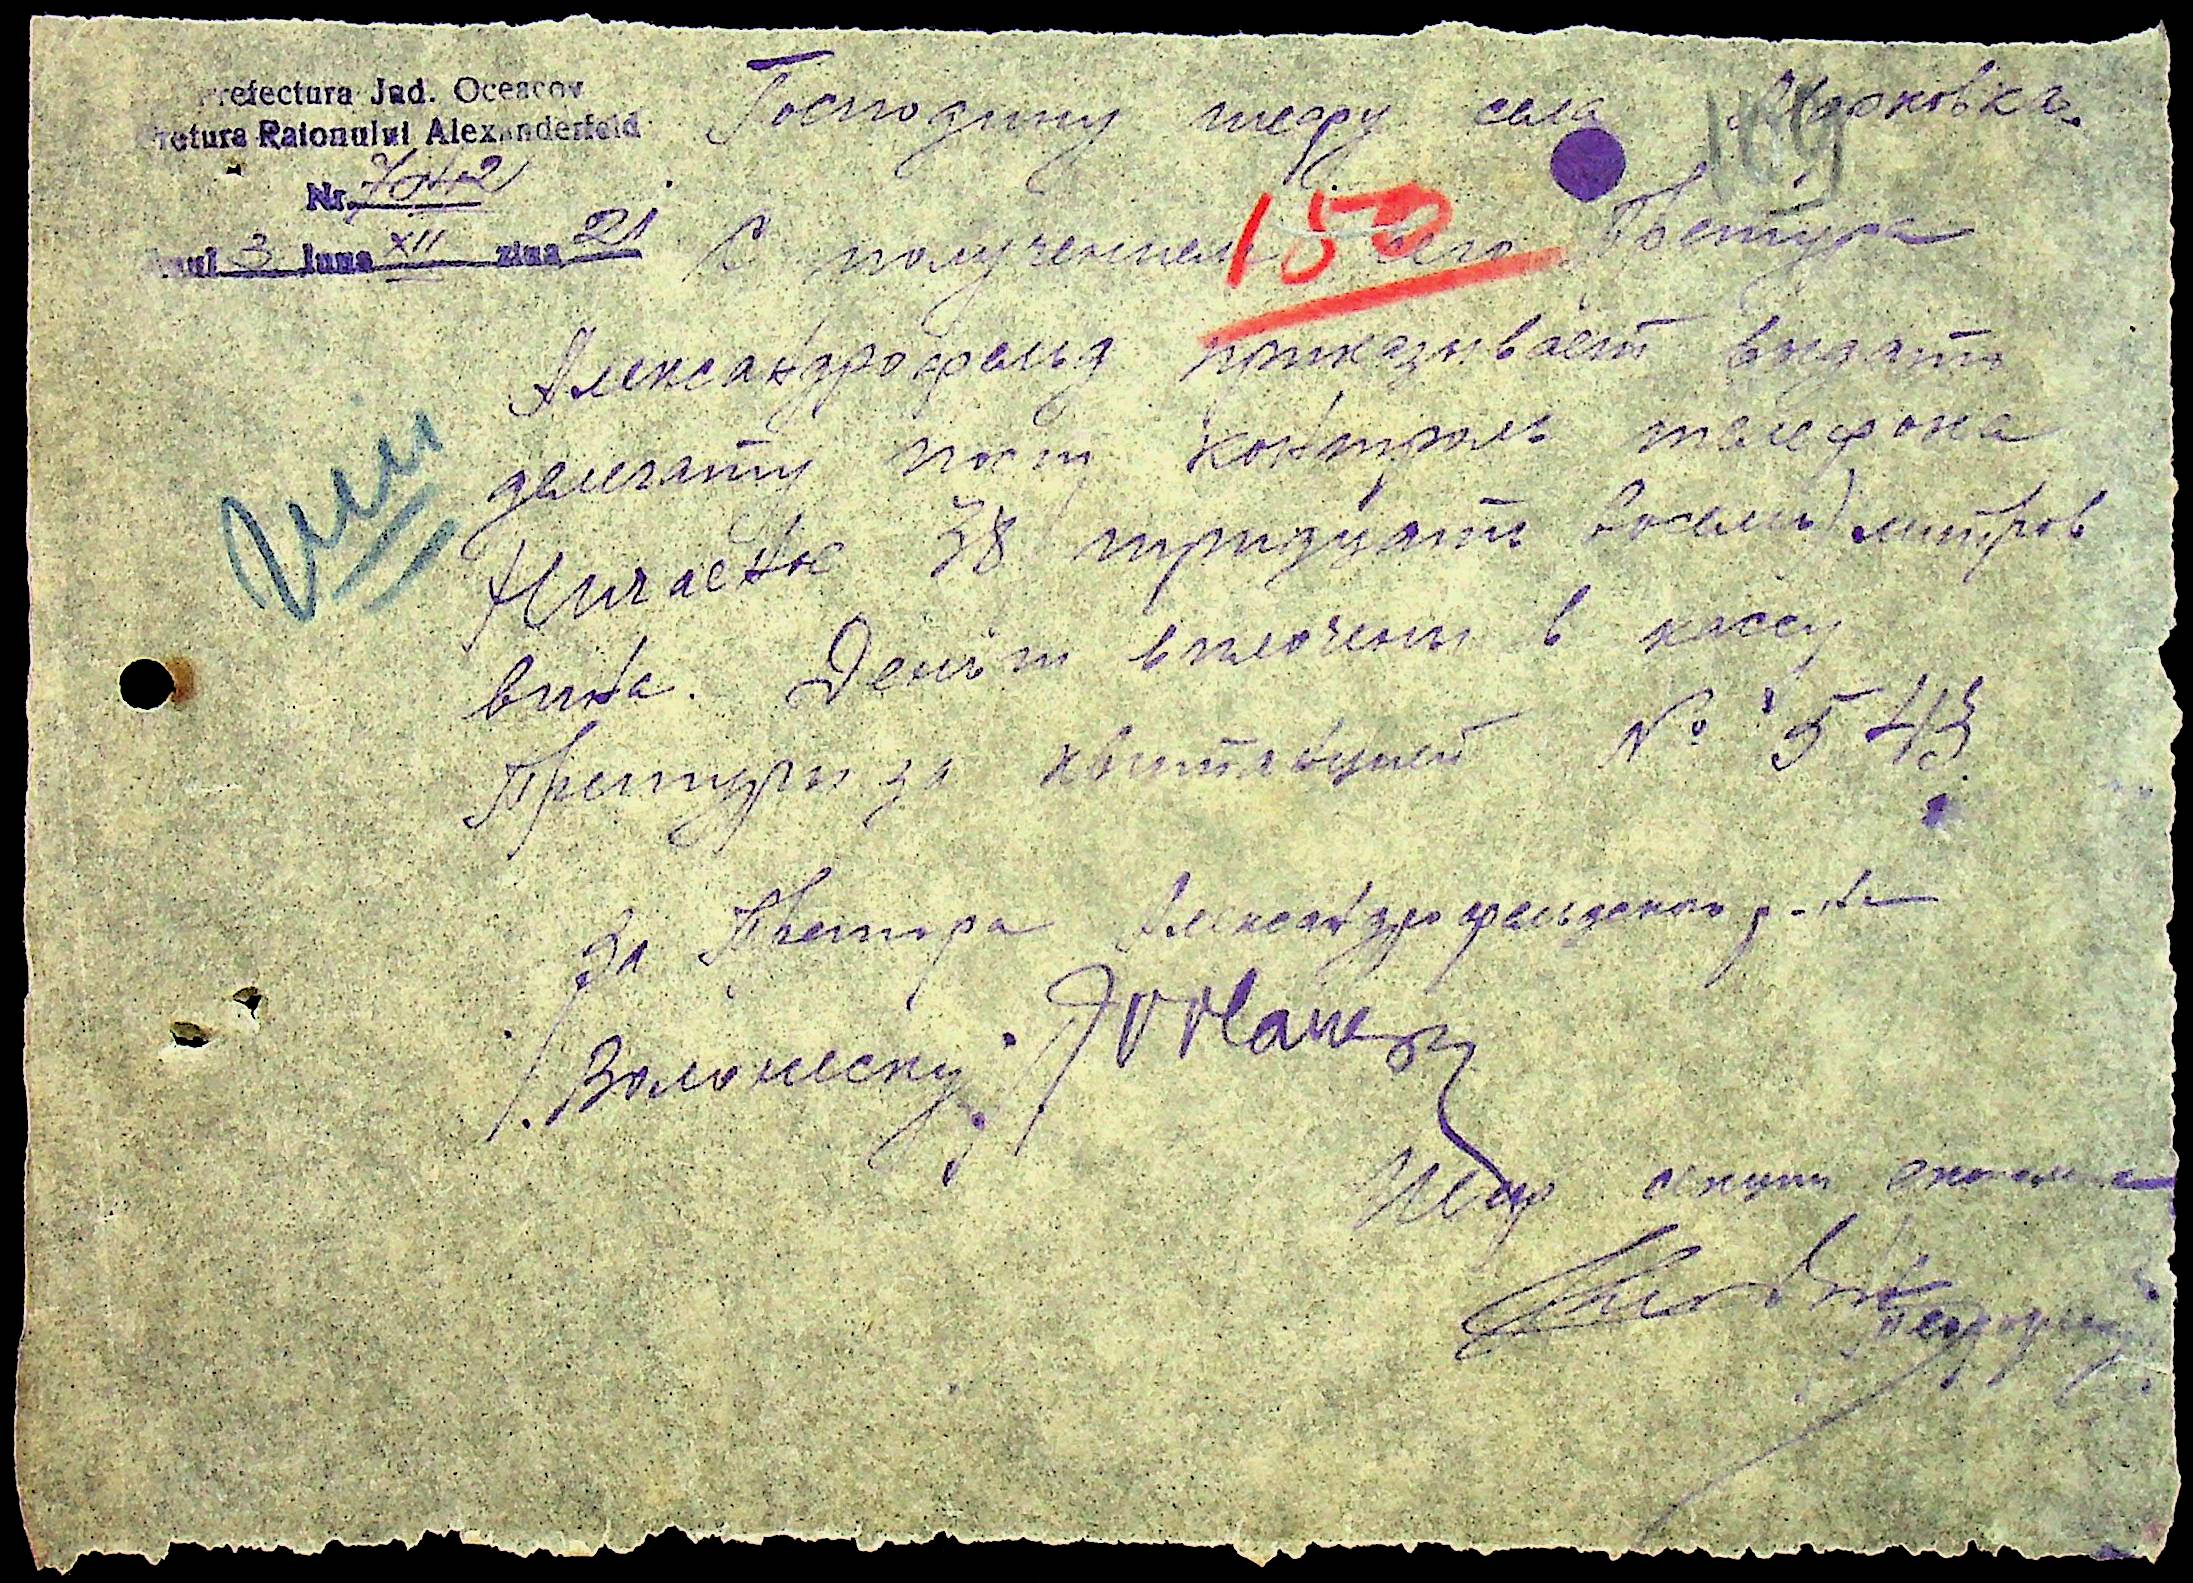 Prefectura Jud. Oceacov
Pretura Raionului Alexanderfeld
Nr. 7042
Anul 3 luna XII ziua 21
Господину шефу села
169
150
С получением сего Претура
Александрофельд приказывает выдать
делегату пост контроль телефона
38 тридцать восемь) литров
вина. Деньги вплочены в кассу
Претуры за квитанцией № 543.
За Претора Александрофельдского р-на
Шеф секции економ